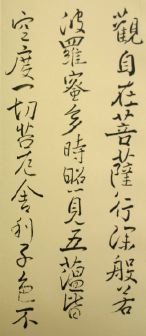 觀自在菩薩行深般若
波羅蜜多時照見五蘊皆
空度一切苦厄舍利子色不